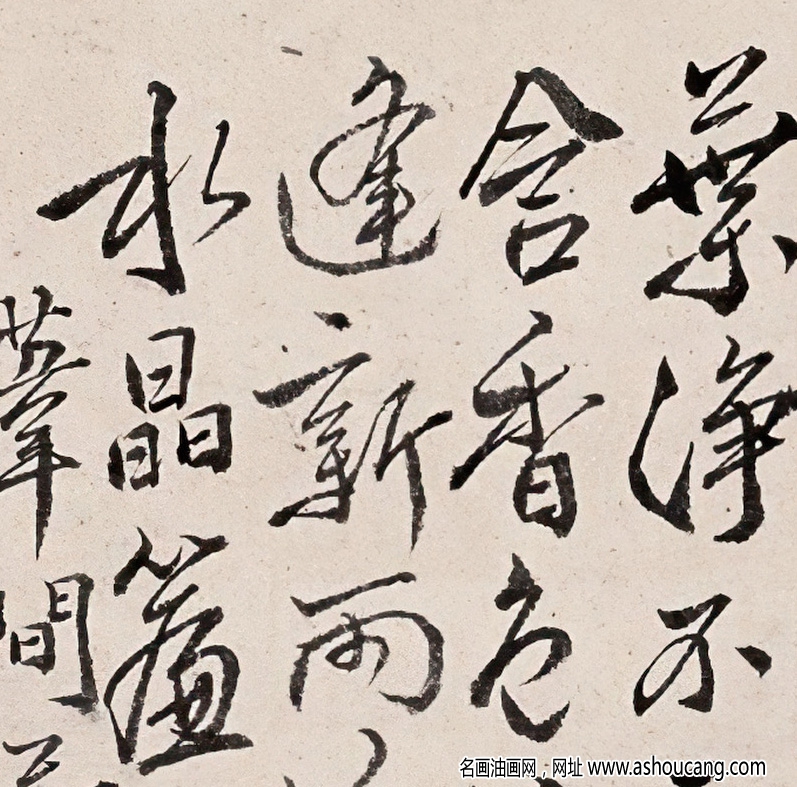 葉淨不
含香色
逢新雨
水晶簾
華間
名画油画网，网址 www.ashoucang.com